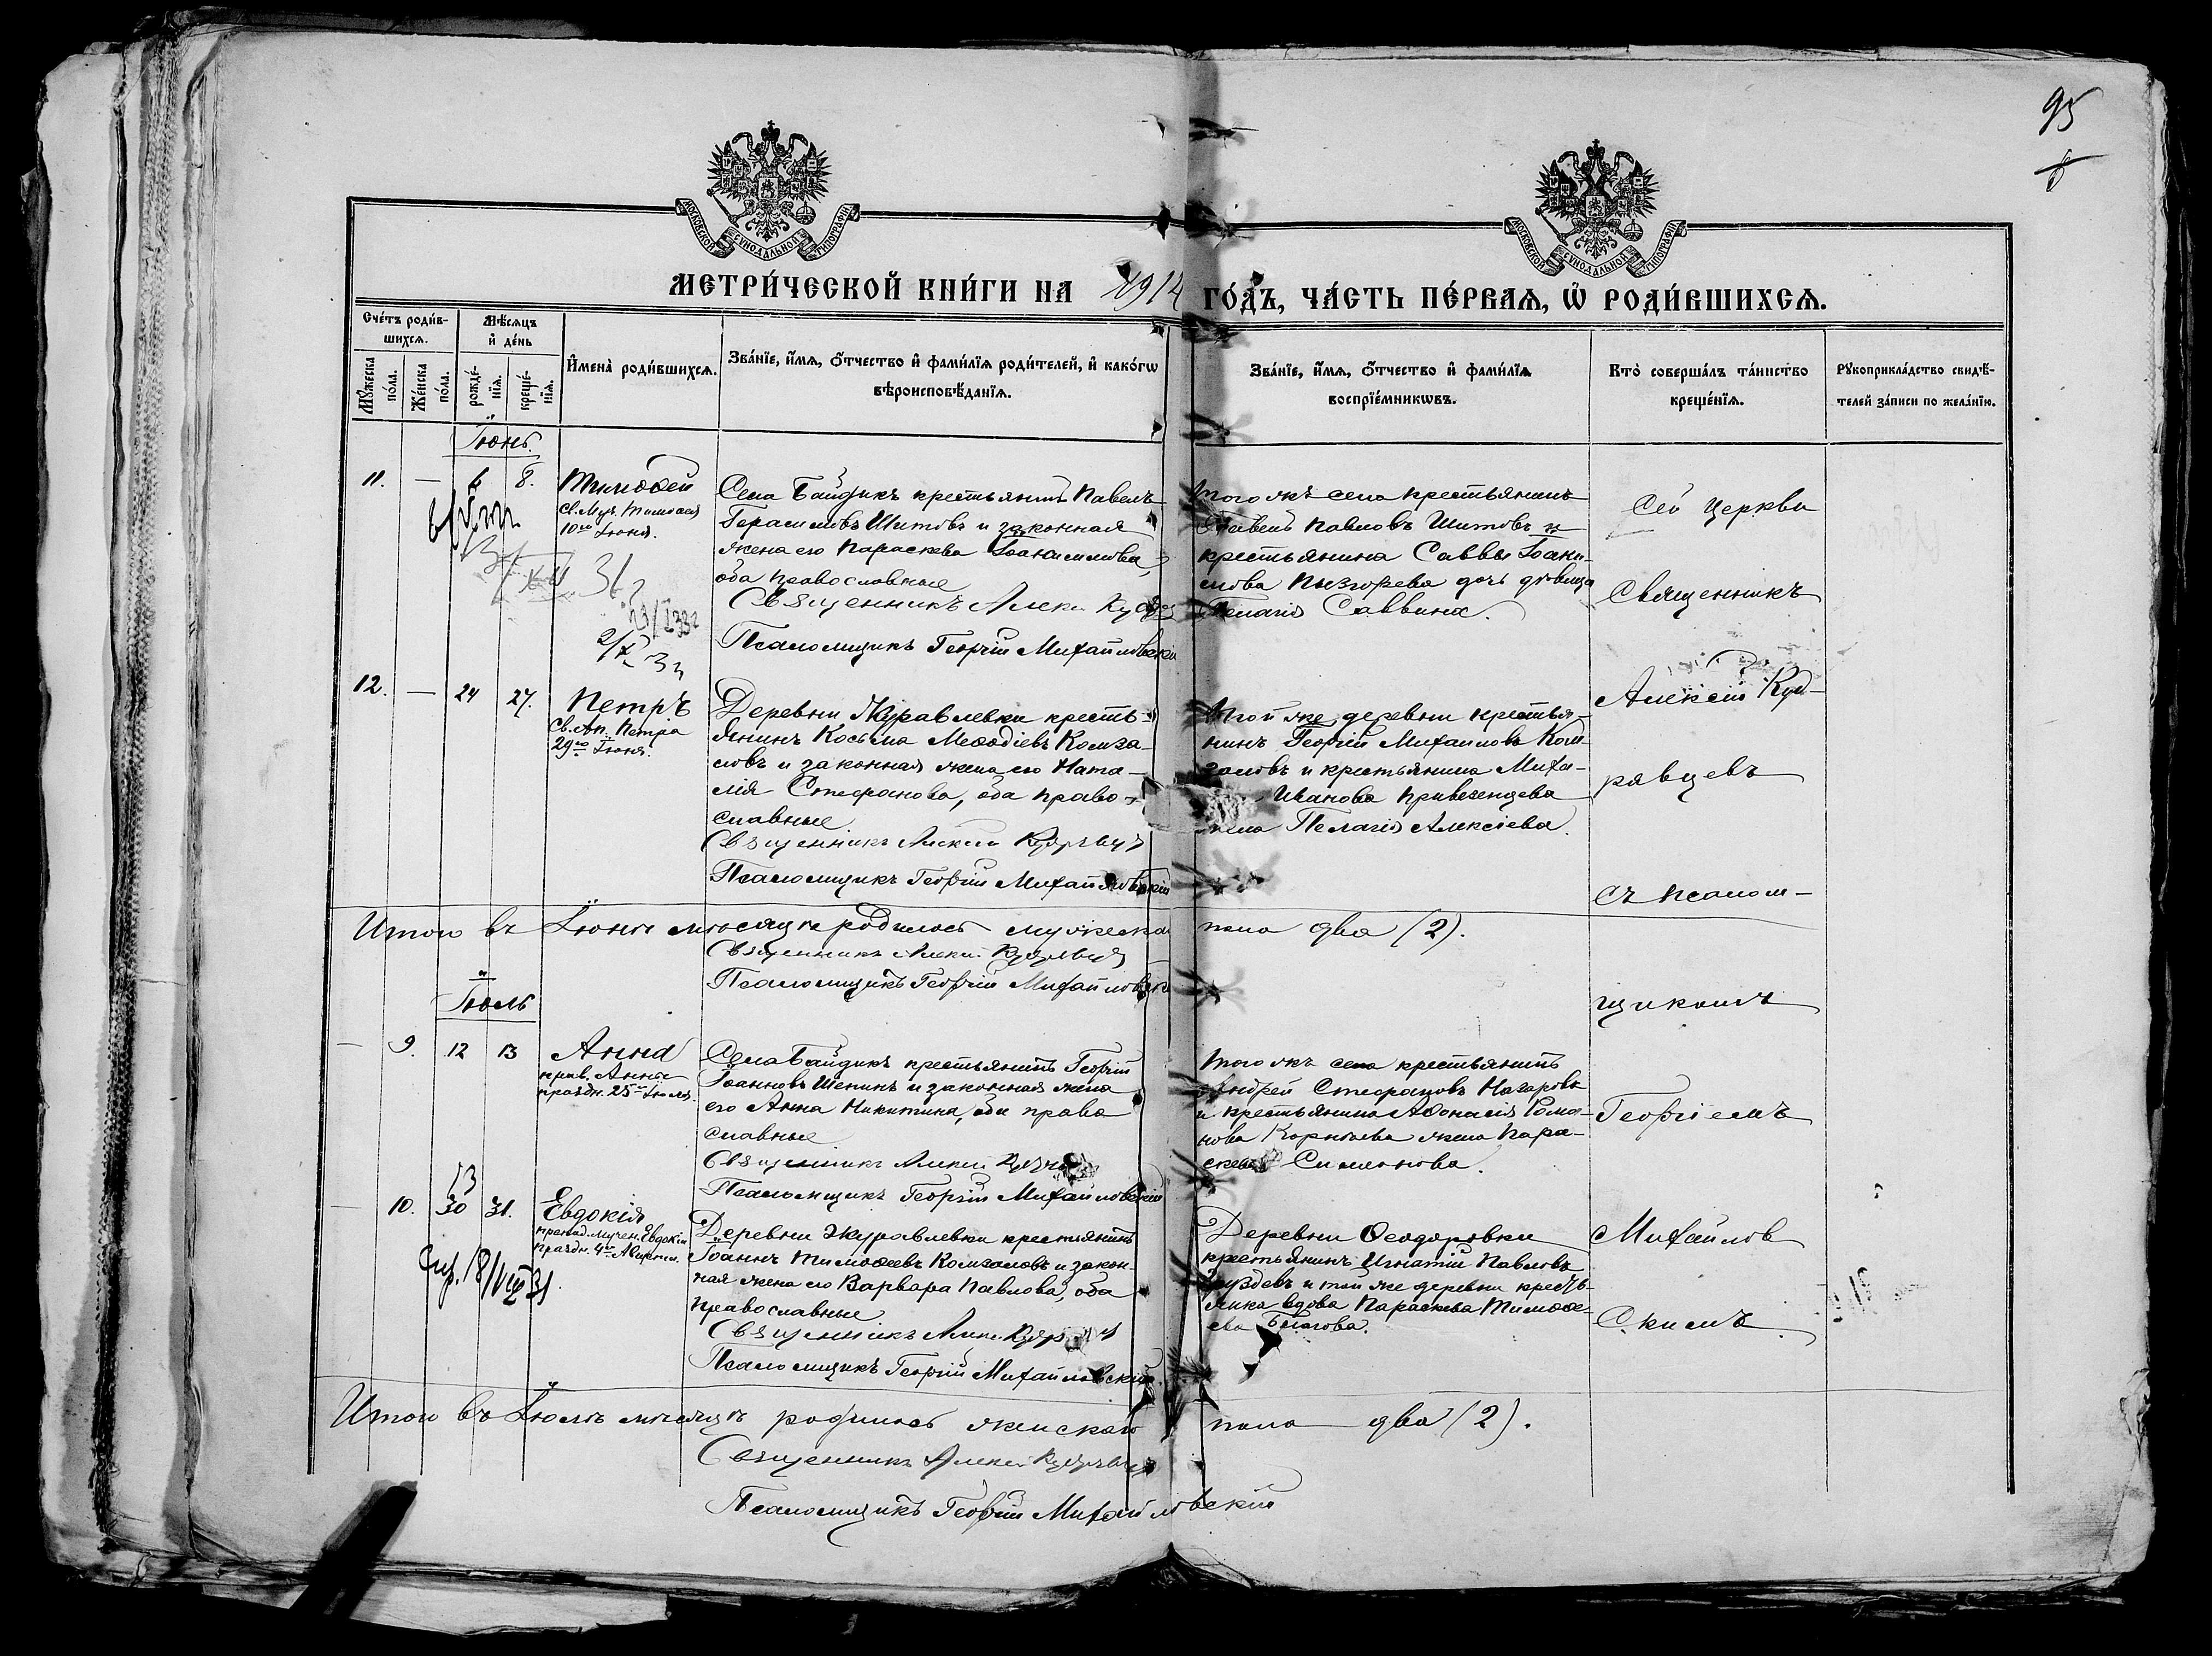 95
МОСКОВСКОЙ СѴНОДАЛЬНОЙ ТИПОГРАФІИ
МОСКОВСКОЙ СѴНОДАЛЬНОЙ ТИПОГРАФІИ
МЕТРИ́ЧЕСКОЙ КНИ́ГИ НА 1914 ГО́ДЪ, ЧА́СТЬ ПЕ́РВАѦ, Ѽ РОДИ́ВШИХСѦ.
Сче́тъ роди́в-
шихсѧ.
Мѣ́сѧцъ
и҆ де́нь
Мꙋ́жеска по́ла.
Же́нска по́ла.
рожде́-
нїѧ.
креще́-
нїѧ.
И҆мена̀ роди́вшихсѧ.
Зва́нїе, и҆́мѧ, ѻ҆́тчество и҆ фами́лїѧ роди́телей, и҆ како́гѡ
вѣроисповѣ́данїѧ.
Зва́нїе, и҆́мѧ, ѻ҆́тчество и҆ фами́лїѧ
воспрїе́мникѡвъ.
Кто̀ соверша́лъ та́инство
креще́нїѧ.
Рꙋкоприкла́дство свидѣ́-
телей за́писи по жела́нїю.
Іюнь.
11. — 6 8. Тимоѳей
св. Муч. Тимоѳея
10го Іюня.
Села Байдикъ крестьянинъ Павелъ
Герасимовъ Шитовъ и законная
жена его Параскева Іоакимова,
оба православные
Священникъ Алекс
Псаломщикъ Георгій Михайловскій
того же села крестьянинъ
Павловъ Шитовъ и
крестьянина Саввы Іоаки-
мова дочь дѣвица
Пелагія Саввина.
Сей церкви
Священникъ
Алексій Куд-
рявцевъ
съ псалом-
щикомъ
Георгіемъ
Михайлов
скимъ
12. — 24 27. Петръ
Св. Ап. Петра
29го Іюня.
Деревни Журавлевки кресть-
янинъ Косьма Меѳодіевъ Комза-
ловъ и законная жена его Ната-
лія Стефанова, оба право-
славные
Священникъ Алексій Кудрявцевъ
Псаломщикъ Георгій Михайловскій
Той же деревни крестья-
нинъ Георгій Михаиловъ Ком-
заловъ и крестьянина Миха-
Иванова Привезенцева
жена Пелагія Алексіева.
Итого въ Іюнѣ мѣсяцѣ родилось мужеска пола два (2).
Священникъ Алексій Кудрявцевъ
Псаломщикъ Георгій Михайловскій
Іюль
— 9. 12 13 Анна
прав. Анны
праздн. 25го Іюля.
Села Байдикъ крестьянинъ Георгій
Іоанновъ Шепинъ и законная жена
его Анна Никитина, оба право
славные
Священникъ Алексій
Псаломщикъ Георгій Михайловскій
того же села крестьянинъ
Андрей Стефановъ Назаровъ
и крестьянина Аѳонасія Рома-
нова жена Пара-
скева Симеонова.
13
— 10. 30 31. Евдокія
препод. мучен. Евдокіи
праздн. 4го Августа.
8/VIII 31
Деревни Журавлевки крестьянинъ
Іоаннъ Тимоѳеевъ Комзаловъ и закон-
ная жена его Варвара Павлова, оба
православные
Священникъ
Псаломщикъ Георгій Михайловскій.
Деревни Ѳеодоровки
крестьянинъ Игнатій Павловъ
Груздевъ и той же деревни кресть-
янка вдова Параскева Тимоѳе-
ева
Итого въ Іюлѣ мѣсяцѣ родилось женскаго пола два (2).
Священникъ Алексій Кудрявцевъ
Псаломщикъ Георгій Михайловскій